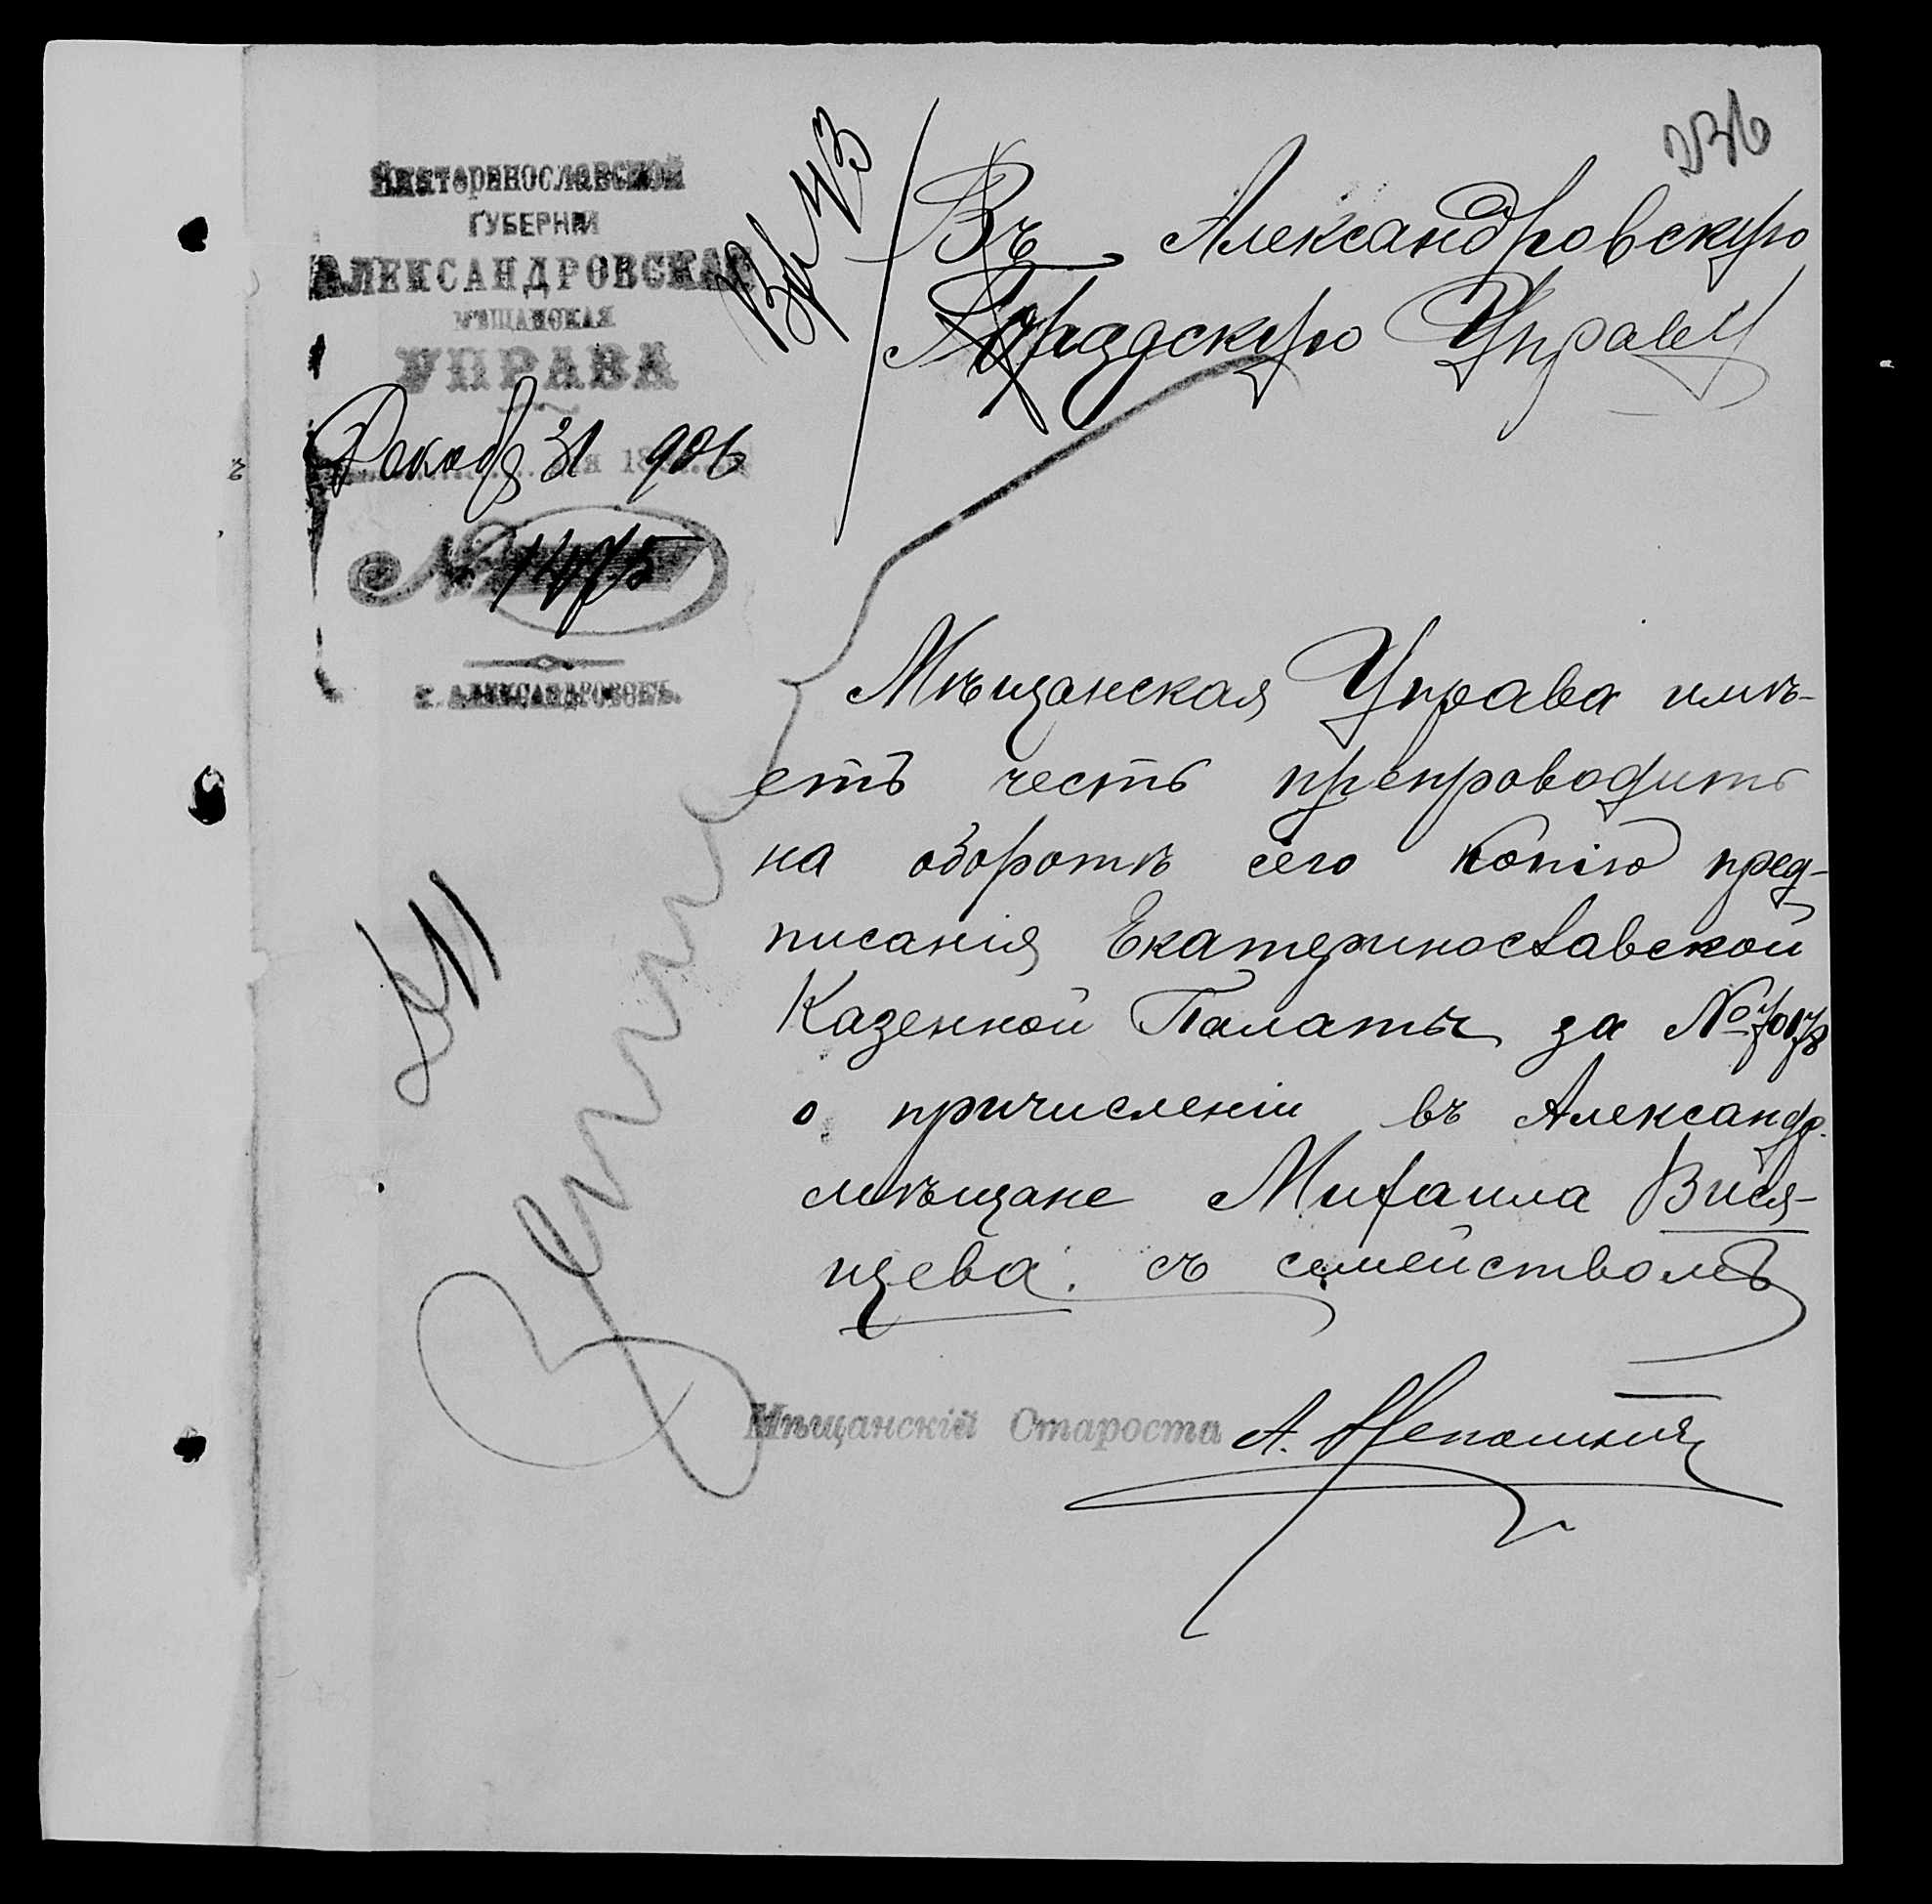 236
Екатеринославской
ГУБЕРНІИ
АЛЕКСАНДРОВСКАЯ
МѢЩАНСКАЯ
УПРАВА
Декабр 31 906
№ 1475
г. АЛЕКСАНДРОВСКЪ.
Въ Александровскую
Городскую Управу
Мѣщанская Управа имѣ-
етъ честь препроводить
на оборотѣ сего копію пред-
писанія Екатеринославской
Казенной Палаты за №
о причисленіи въ Александр.
мѣщане Михаила Вися-
щева съ семействомъ
Мѣщанскій Староста А.